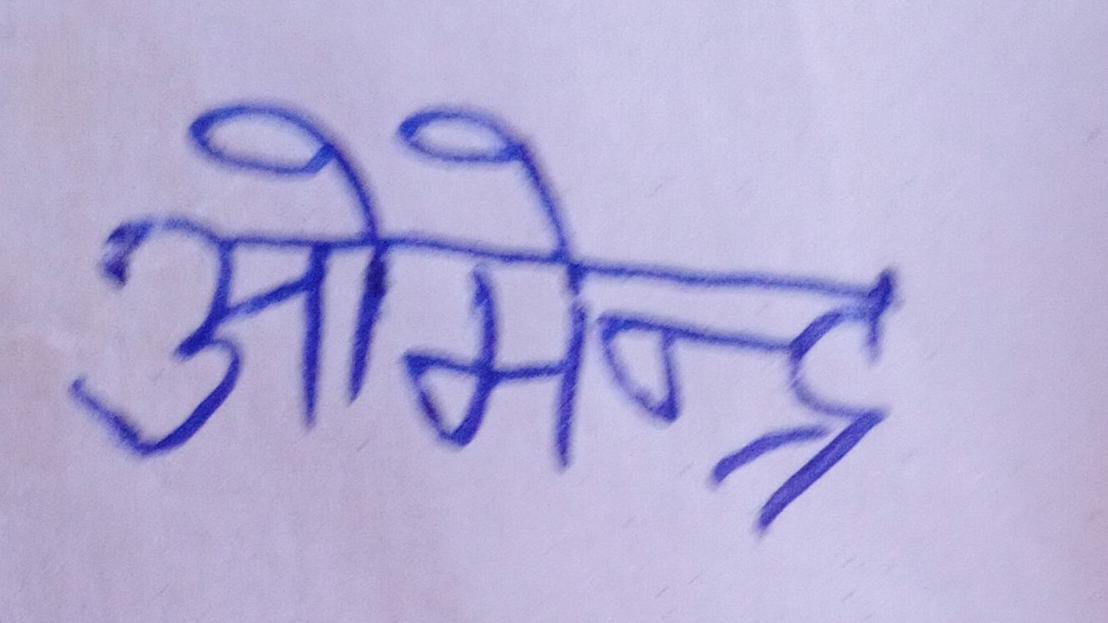 ओमेन्द्र